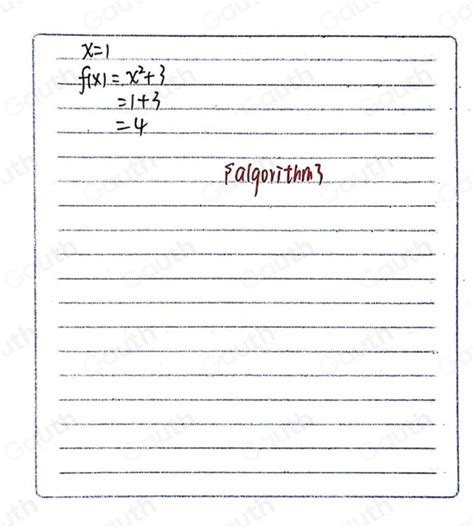 x=1
f(x)=x²+3
=1+3
=4
{algorithm}